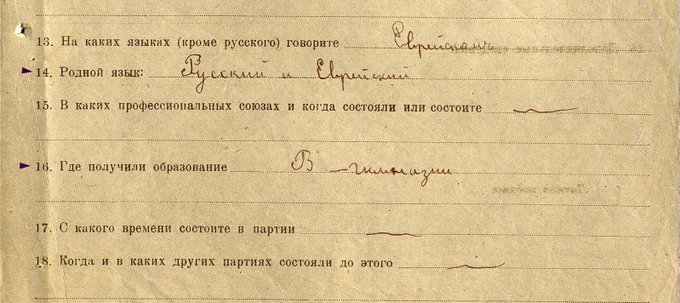 13. На каких языках (кроме русского) говорите Еврейскомъ
14. Родной язык: Русский и Еврейский
15. В каких профессиональных союзах и когда состояли или состоите —
16. Где получили образование В гимназии
17. С какого времени состоите в партии —
18. Когда и в каких других партиях состояли до этого —